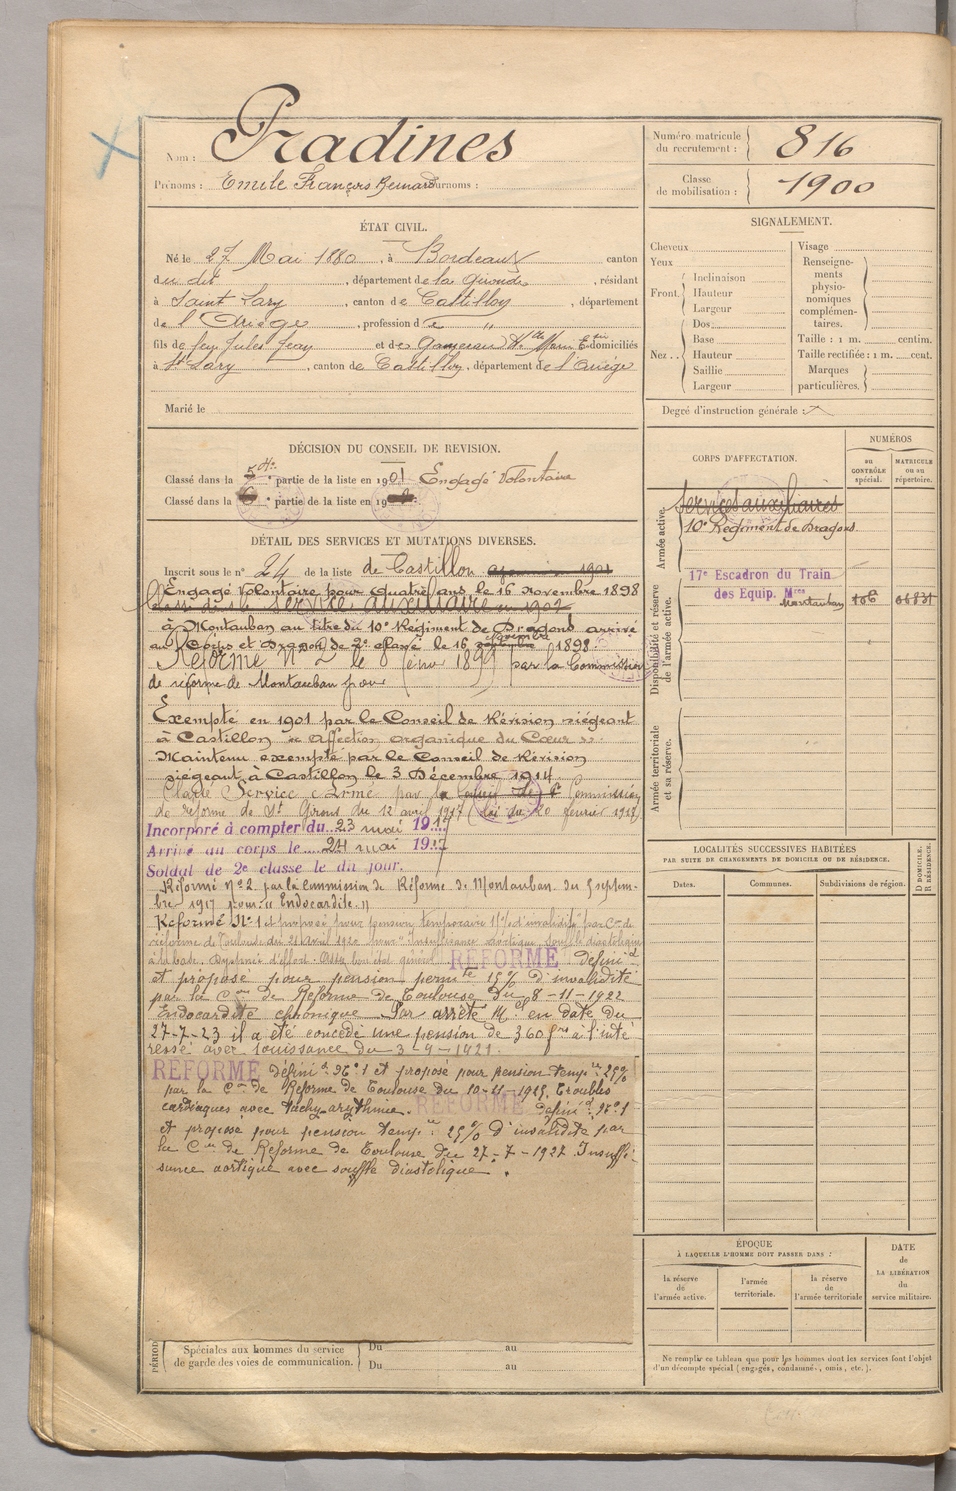 Nom : Pradines
Prénoms : Emile François Bernard Surnoms :
Numéro matricule du recrutement : 816
Classe de mobilisation : 1900
ÉTAT CIVIL.
Né le 27 Mai 1880, à Bordeaux canton
du dit, département de la Gironde, résidant
à Saint Lary, canton de Castillon, département
de l'Ariège, profession de "
fils de feu Jules Jean et de domiciliés
à St Lary, canton de Castillon, département de l'Ariège
Marié le
SIGNALEMENT.
Cheveux
Yeux
Front. Inclinaison
Hauteur
Largeur
Nez .. Dos
Base
Hauteur
Saillie
Largeur
Visage
Renseignements physionomiques complémentaires.
Taille : 1 m. centim.
Taille rectifiée : 1 m. cent.
Marques particulières.
Degré d'instruction générale :
DÉCISION DU CONSEIL DE REVISION.
Classé dans la 5e partie de la liste en 1901 Engagé Volontaire
Classé dans la partie de la liste en 19
DÉTAIL DES SERVICES ET MUTATIONS DIVERSES.
Inscrit sous le n° 24 de la liste de Castillon
Engagé Volontaire pour quatre ans le 16 novembre 1898
Classé dans le service auxiliaire en 1902
à Montauban au titre du 10e Régiment de Dragons arrivé
au Corps et Dragon de 2e classe le 16 novembre 1898.
Réformé N° 2 le 8 février 1899 par la Commission
de réforme de Montauban pour
Exempté en 1901 par le Conseil de Révision siégeant
à Castillon "Affection organique du Cœur"
Maintenu exempté par le Conseil de Révision
siégeant à Castillon le 3 Décembre 1914
Classé Service Armé par la Commission
de réforme de St Girons du 12 avril 1917 (loi du 20 février 1917)
Incorporé à compter du 23 mai 1917
Arrivé au corps le 24 mai 1917
Soldat de 2e classe le dit jour.
Réformé N° 2 par la Commission de Réforme de Montauban du 5 septem-
bre 1917 pour "Endocardite"
Réformé N° 1 et proposé pour pension temporaire 15% d'invalidité par Con de
réforme de Toulouse du 21 Avril 1920 pour "Insuffisance aortique, souffle diastolique
à la base. Dyspnée d'effort. Assez bon état général RÉFORMÉ définit
et proposé pour pension permte 15% d'invalidité
par la Con de Réforme de Toulouse du 8-11-1922
Endocardite chronique Par arrêté Mel en date du
27-7-23 il a été concédé une pension de 360 frs à l'inté
ressé avec jouissance du
RÉFORMÉ définit N° 1 et proposé pour pension tempre 25%
par la Con de Réforme de Toulouse du 10-11-1925. Troubles
cardiaques avec tachy-arythmie. RÉFORMÉ définit N° 1
et proposé pour pension tempre 25% d'invalidité par
la Con de Réforme de Toulouse du 27-7-1927 Insuffi-
sance aortique avec souffle diastolique.
PÉRIOD
Spéciales aux hommes du service de garde des voies de communication.
Du au
Du au
CORPS D'AFFECTATION.
NUMÉROS
au CONTRÔLE spécial.
MATRICULE ou au répertoire.
Armée active.
Services auxiliaires
10e Régiment de Dragons
Disponibilité et réserve de l'armée active.
17e Escadron du Train
des Equip. Mres
Montauban
Armée territoriale et sa réserve.
LOCALITÉS SUCCESSIVES HABITÉES
PAR SUITE DE CHANGEMENTS DE DOMICILE OU DE RÉSIDENCE.
Dates.
Communes.
Subdivisions de région.
D DOMICILE. R RÉSIDENCE.
ÉPOQUE
À LAQUELLE L'HOMME DOIT PASSER DANS :
la réserve de l'armée active.
l'armée territoriale.
la réserve de l'armée territoriale
DATE de LA LIBÉRATION du service militaire.
Ne remplir ce tableau que pour les hommes dont les services font l'objet
d'un décompte spécial (engagés, condamnés, omis, etc.).